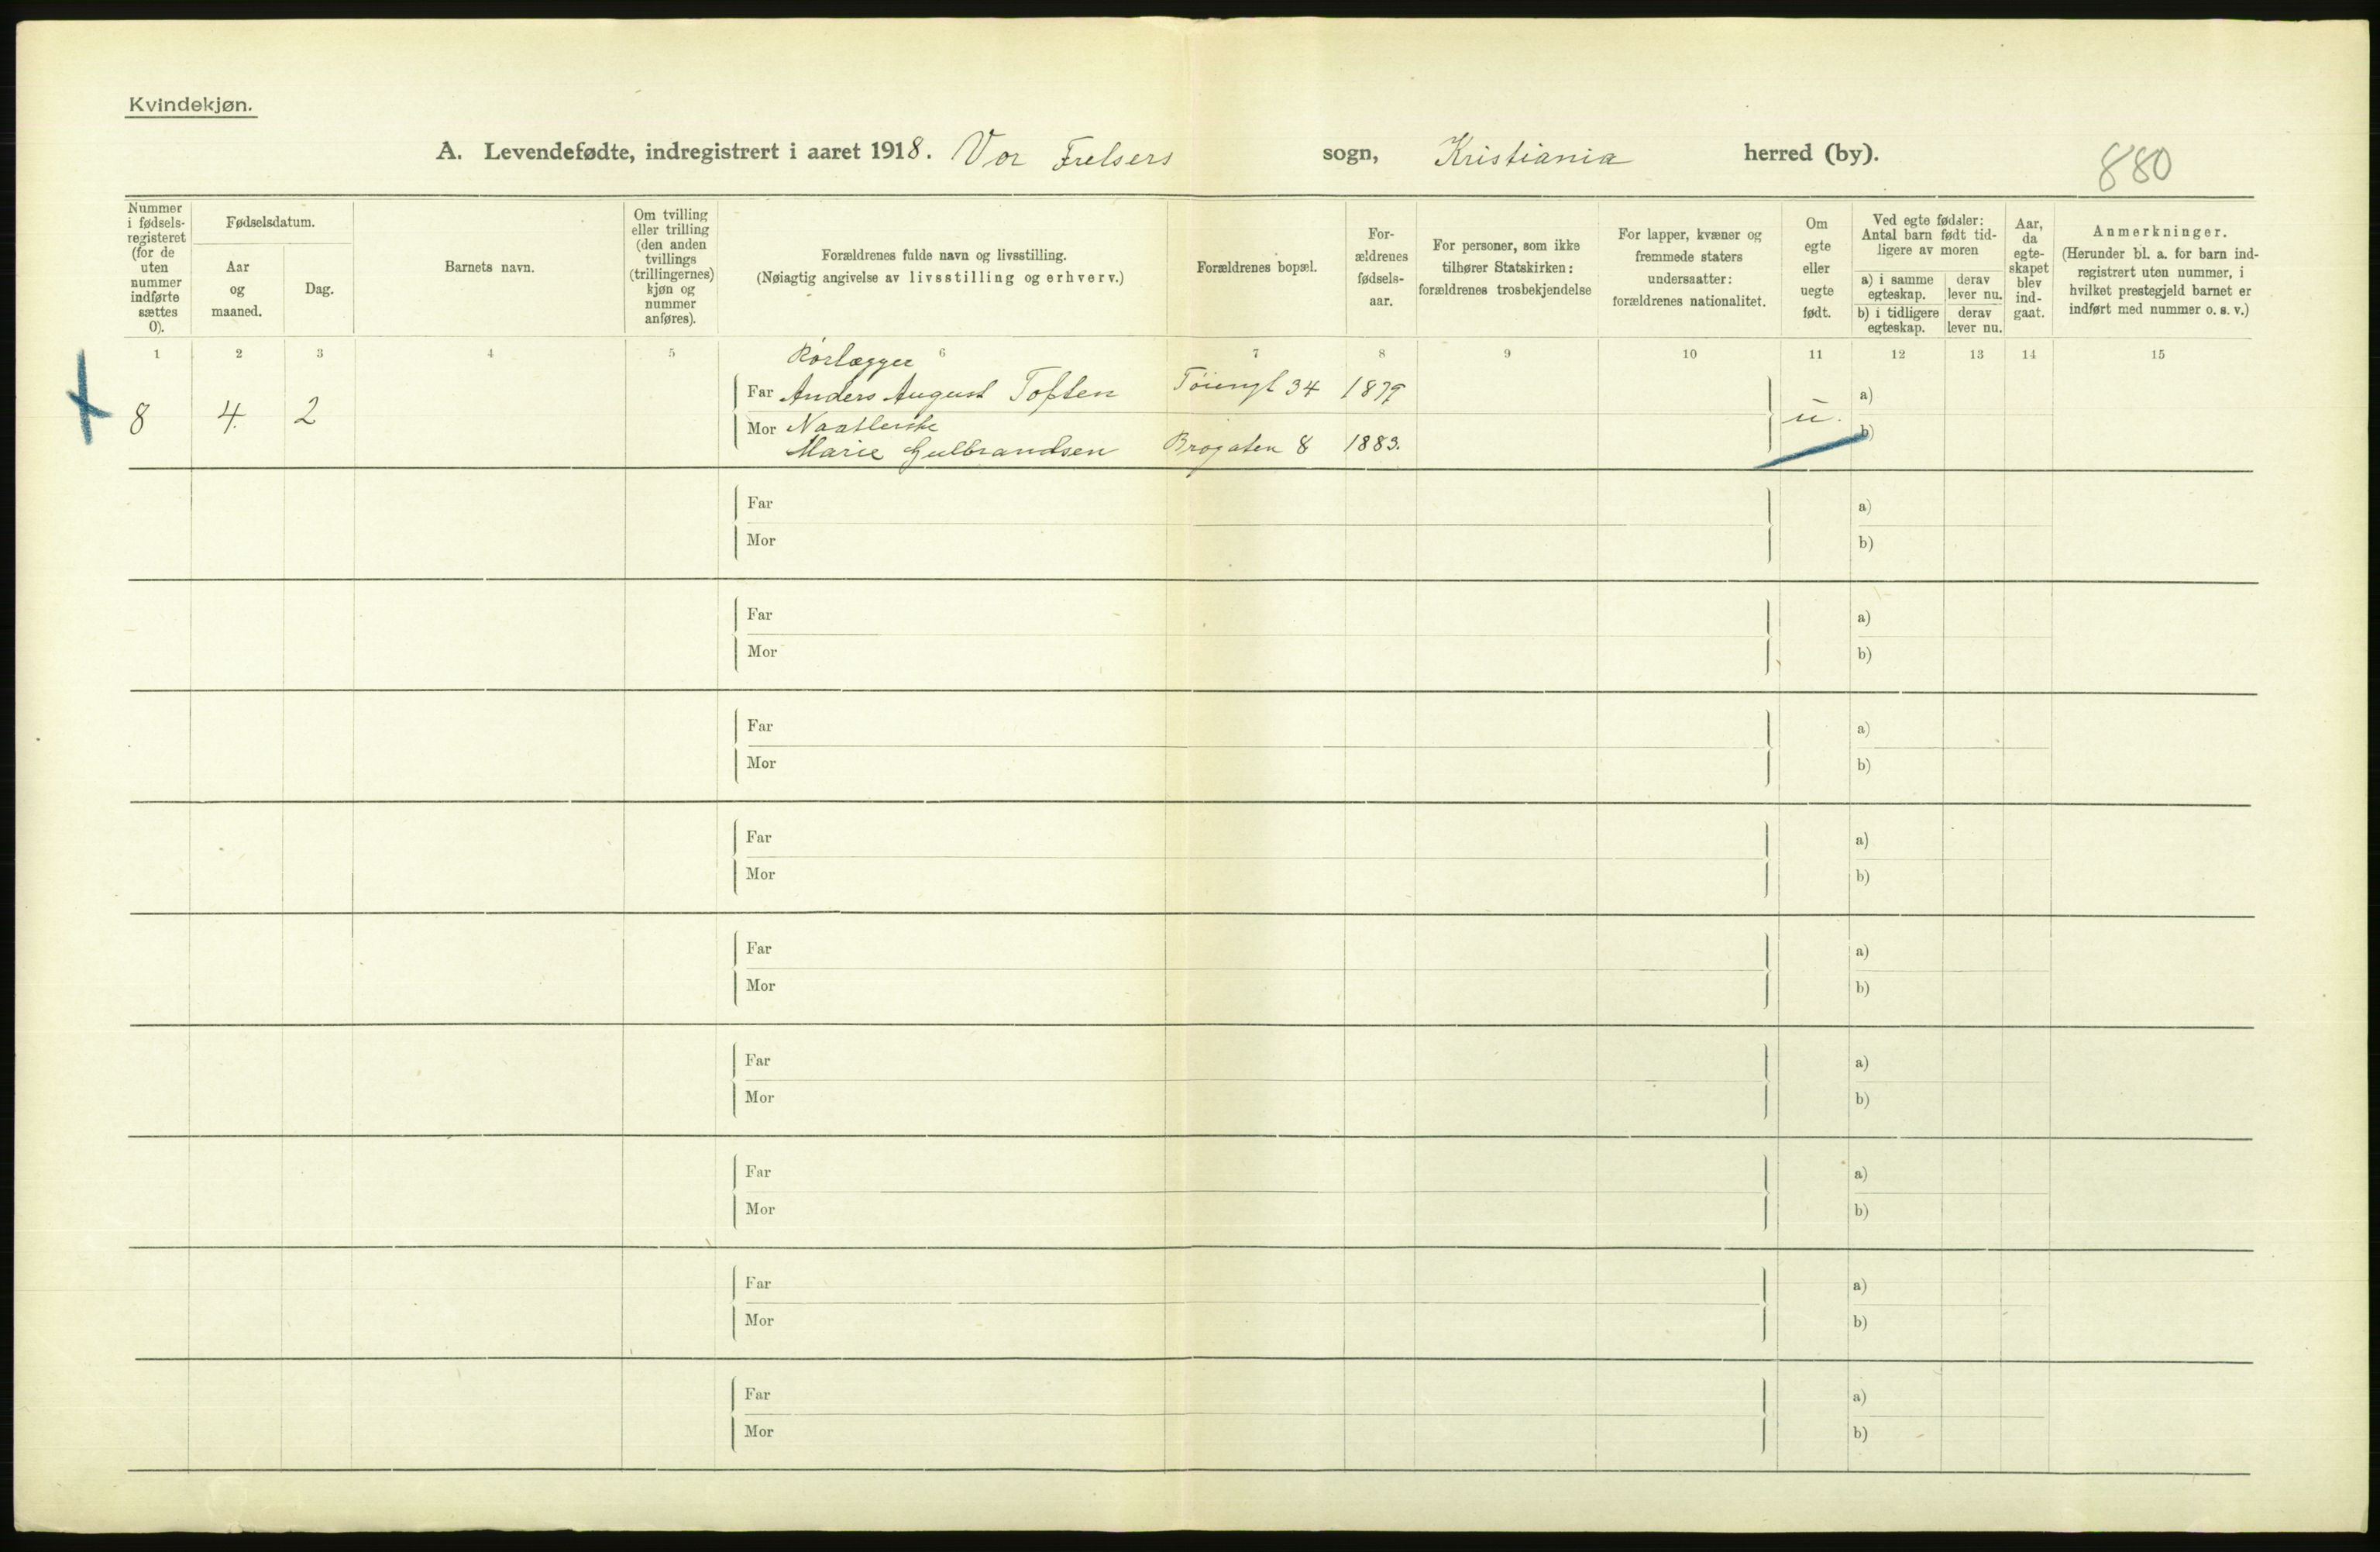 Kvindekjøn.
A. Levendefødte, indregistrert i aaret 1918. Vor Frelsers sogn, Kristiania herred (by).
880
Nummer i fødsels-registeret (for de uten nummer indførte sættes 0).
Fødselsdatum.
Aar og maaned.
Dag.
Barnets navn.
Om tvilling eller trilling (den anden tvillings (trillingernes) kjøn og nummer anføres).
Forældrenes fulde navn og livsstilling.
(Nøiagtig angivelse av livsstilling og erhverv.)
Forældrenes bopæl.
For-ældrenes fødsels-aar.
For personer, som ikke tilhører Statskirken: forældrenes trosbekjendelse
For lapper, kvæner og fremmede staters undersaatter: forældrenes nationalitet.
Om egte eller uegte født.
Ved egte fødsler: Antal barn født tid-ligere av moren
a) i samme egteskap.
derav lever nu.
b) i tidligere egteskap.
derav lever nu.
Aar, da egte-skapet blev ind-gaat.
Anmerkninger.
(Herunder bl. a. for barn ind-registrert uten nummer, i hvilket prestegjeld barnet er indført med nummer o. s. v.)
1 2 3 4 5 6 7 8 9 10 11 12 13 14 15
Rørlægger
Far Anders August Toften Tøiengt 34 1879 a)
8 4. 2 u.
Mor Naatlerske b)
Marie Gulbrandsen Brogaten 8 1883.
Far a)
Mor b)
Far a)
Mor b)
Far a)
Mor b)
Far a)
Mor b)
Far a)
Mor b)
Far a)
Mor b)
Far a)
Mor b)
Far a)
Mor b)
Far a)
Mor b)